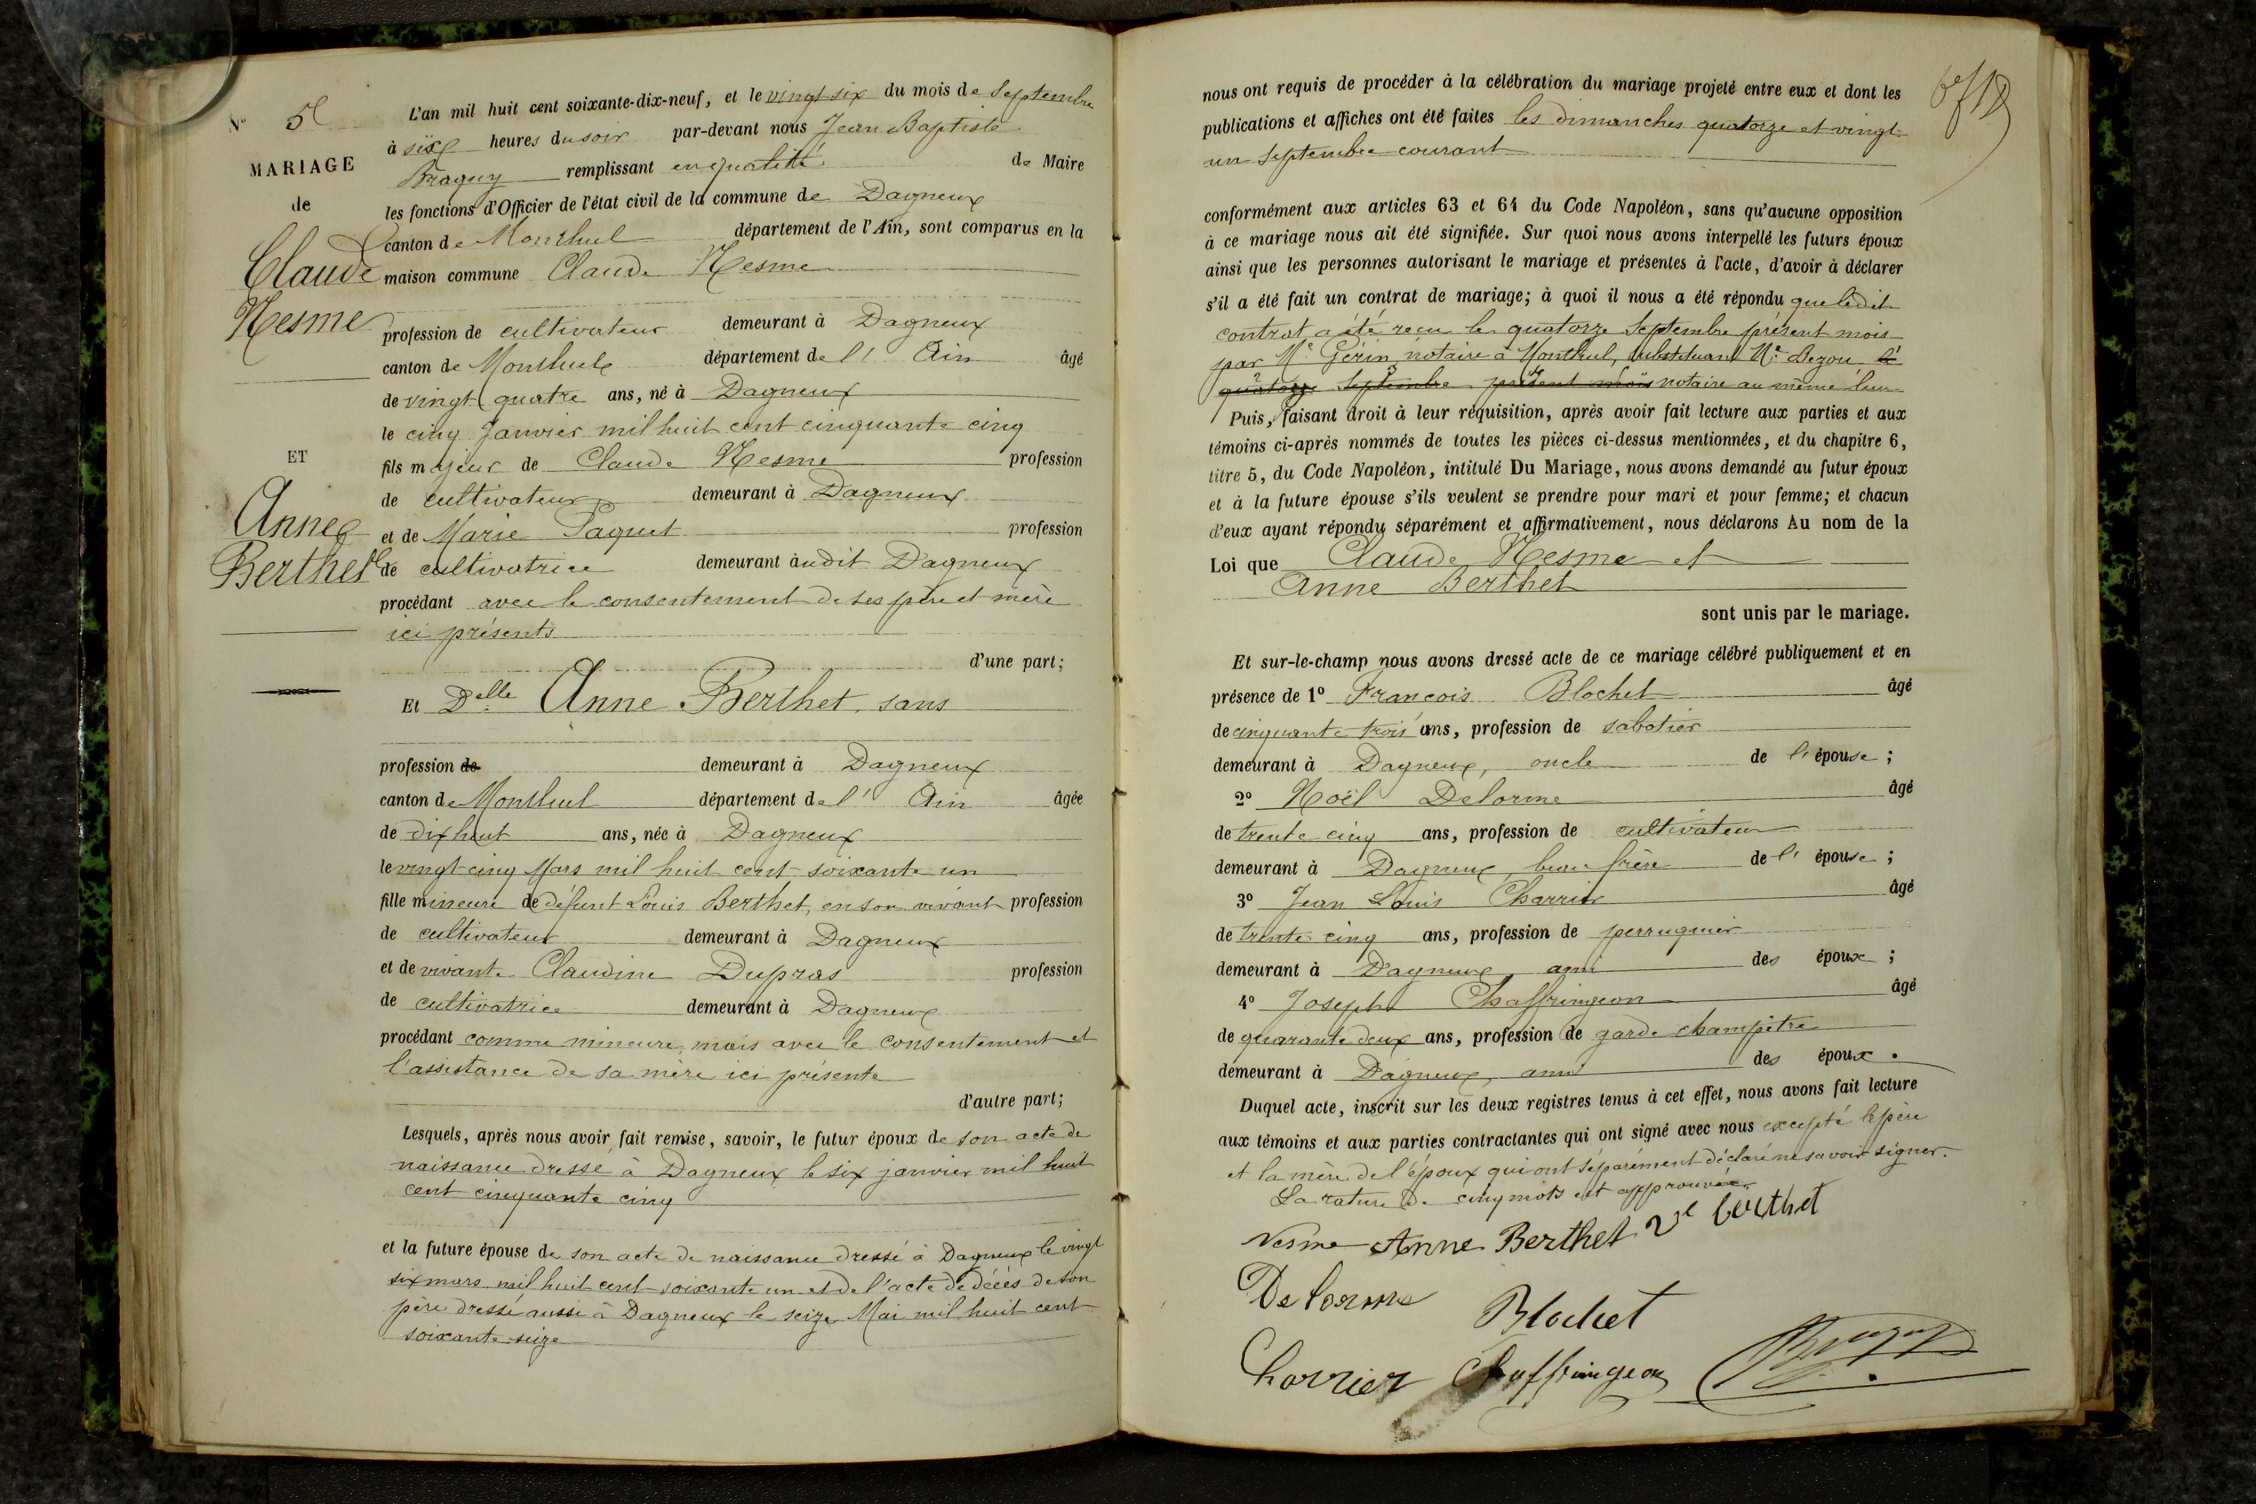 N° 5
MARIAGE
de
Claude
Nesme
ET
Anne
Berthet
L'an mil huit cent soixante-dix-neuf, et le vingt six du mois de Septembre
à six heures du soir par-devant nous Jean Baptiste
Braguy remplissant en qualité de Maire
les fonctions d'Officier de l'état civil de la commune de Dagneux
canton de Montluel département de l'Ain, sont comparus en la
maison commune Claude Nesme
profession de cultivateur demeurant à Dagneux
canton de Montluel département de l' Ain âgé
de vingt quatre ans, né à Dagneux
le cinq Janvier mil huit cent cinquante cinq
fils majeur de Claude Nesme profession
de cultivateur demeurant à Dagneux
et de Marie Paquet profession
de cultivatrice demeurant audit Dagneux
procédant avec le consentement de ses père et mère
ici présents
d'une part;
Et Delle Anne Berthet, sans
profession de demeurant à Dagneux
canton de Montluel département de l' Ain âgée
de dix huit ans, née à Dagneux
le vingt cinq Mars mil huit cent soixante un
fille mineure de défunt Louis Berthet, en son vivant profession
de cultivateur demeurant à Dagneux
et de vivante Claudine Dupras profession
de cultivatrice demeurant à Dagneux
procédant comme mineure, mais avec le consentement et
l'assistance de sa mère ici présente
d'autre part;
Lesquels, après nous avoir fait remise, savoir, le futur époux de son acte de
naissance dressé à Dagneux le six janvier mil huit
cent cinquante cinq
et la future épouse de son acte de naissance dressé à Dagneux le vingt
six mars mil huit cent soixante un et de l'acte de décès de son
père dressé aussi à Dagneux le seize Mai mil huit cent
soixante seize
nous ont requis de procéder à la célébration du mariage projeté entre eux et dont les
publications et affiches ont été faites les dimanches quatorze et vingt
un Septembre courant
conformément aux articles 63 et 64 du Code Napoléon, sans qu'aucune opposition
à ce mariage nous ait été signifiée. Sur quoi nous avons interpellé les futurs époux
ainsi que les personnes autorisant le mariage et présentes à l'acte, d'avoir à déclarer
s'il a été fait un contrat de mariage; à quoi il nous a été répondu que ledit
contrat a été reçu le quatorze Septembre présent mois
par Me Gérin, notaire à Montluel, substituant Me Dezou le
quatorze Septembre présent mois notaire au même lieu
Puis, faisant droit à leur réquisition, après avoir fait lecture aux parties et aux
témoins ci-après nommés de toutes les pièces ci-dessus mentionnées, et du chapitre 6,
titre 5, du Code Napoléon, intitulé Du Mariage, nous avons demandé au futur époux
et à la future épouse s'ils veulent se prendre pour mari et pour femme; et chacun
d'eux ayant répondu séparément et affirmativement, nous déclarons Au nom de la
Loi que Claude Nesme et
Anne Berthet
sont unis par le mariage.
Et sur-le-champ nous avons dressé acte de ce mariage célébré publiquement et en
présence de 1° François Blochet âgé
de cinquante trois ans, profession de sabotier
demeurant à Dagneux, oncle de l'épouse;
2° Noël Delorme âgé
de trente cinq ans, profession de cultivateur
demeurant à Dagneux beau frère de l'épouse;
3° Jean Louis Charrier âgé
de trente cinq ans, profession de perruquier
demeurant à Dagneux, ami des époux;
4° Joseph Chaffringeon âgé
de quarante deux ans, profession de garde champêtre
demeurant à Dagneux, ami des époux.
Duquel acte, inscrit sur les deux registres tenus à cet effet, nous avons fait lecture
aux témoins et aux parties contractantes qui ont signé avec nous excepté le père
et la mère de l'époux qui ont séparément déclaré ne savoir signer.
La rature de cinq mots est approuvée
Nesme Anne Berthet Ve berthet
Delorme Blochet
Charrier Chaffringeon